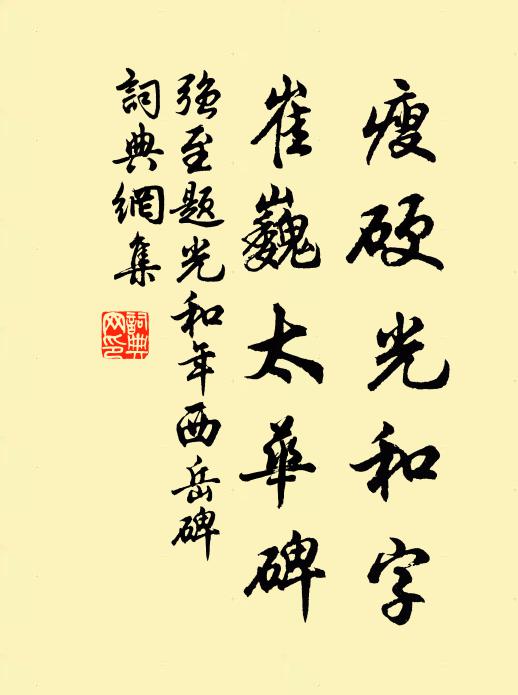 瘦硬光和字
崔巍太華碑
強至題光和年西岳碑
詞典網集
詞典
网印